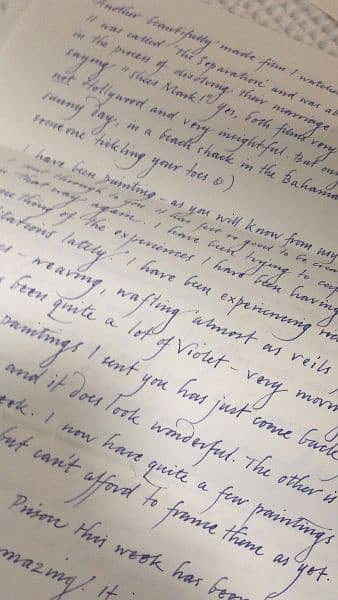 Another beautifully made film I watched
It was called 'The Separation' and was ab
in the process of dissolving their marriage
saying "shees Mark!" Yes, both films very
not Hollywood and very insightful. But on
sunny day, in a beach shack in the Bahama
someone tickling your toes ☺)
I have been painting - as you will know from my
through to you. It has just so good to be
that way again. I have been trying to cap
thing of the experiences I have been having
itations lately. I have been experiencing
- weaving, wafting almost as veils,
been quite a lot of Violet - very mov
paintings I sent you has just come back
and it does look wonderful. The other is
eek. I now have quite a few paintings
but can't afford to frame them as yet.
Prison this week has been
mazing! It